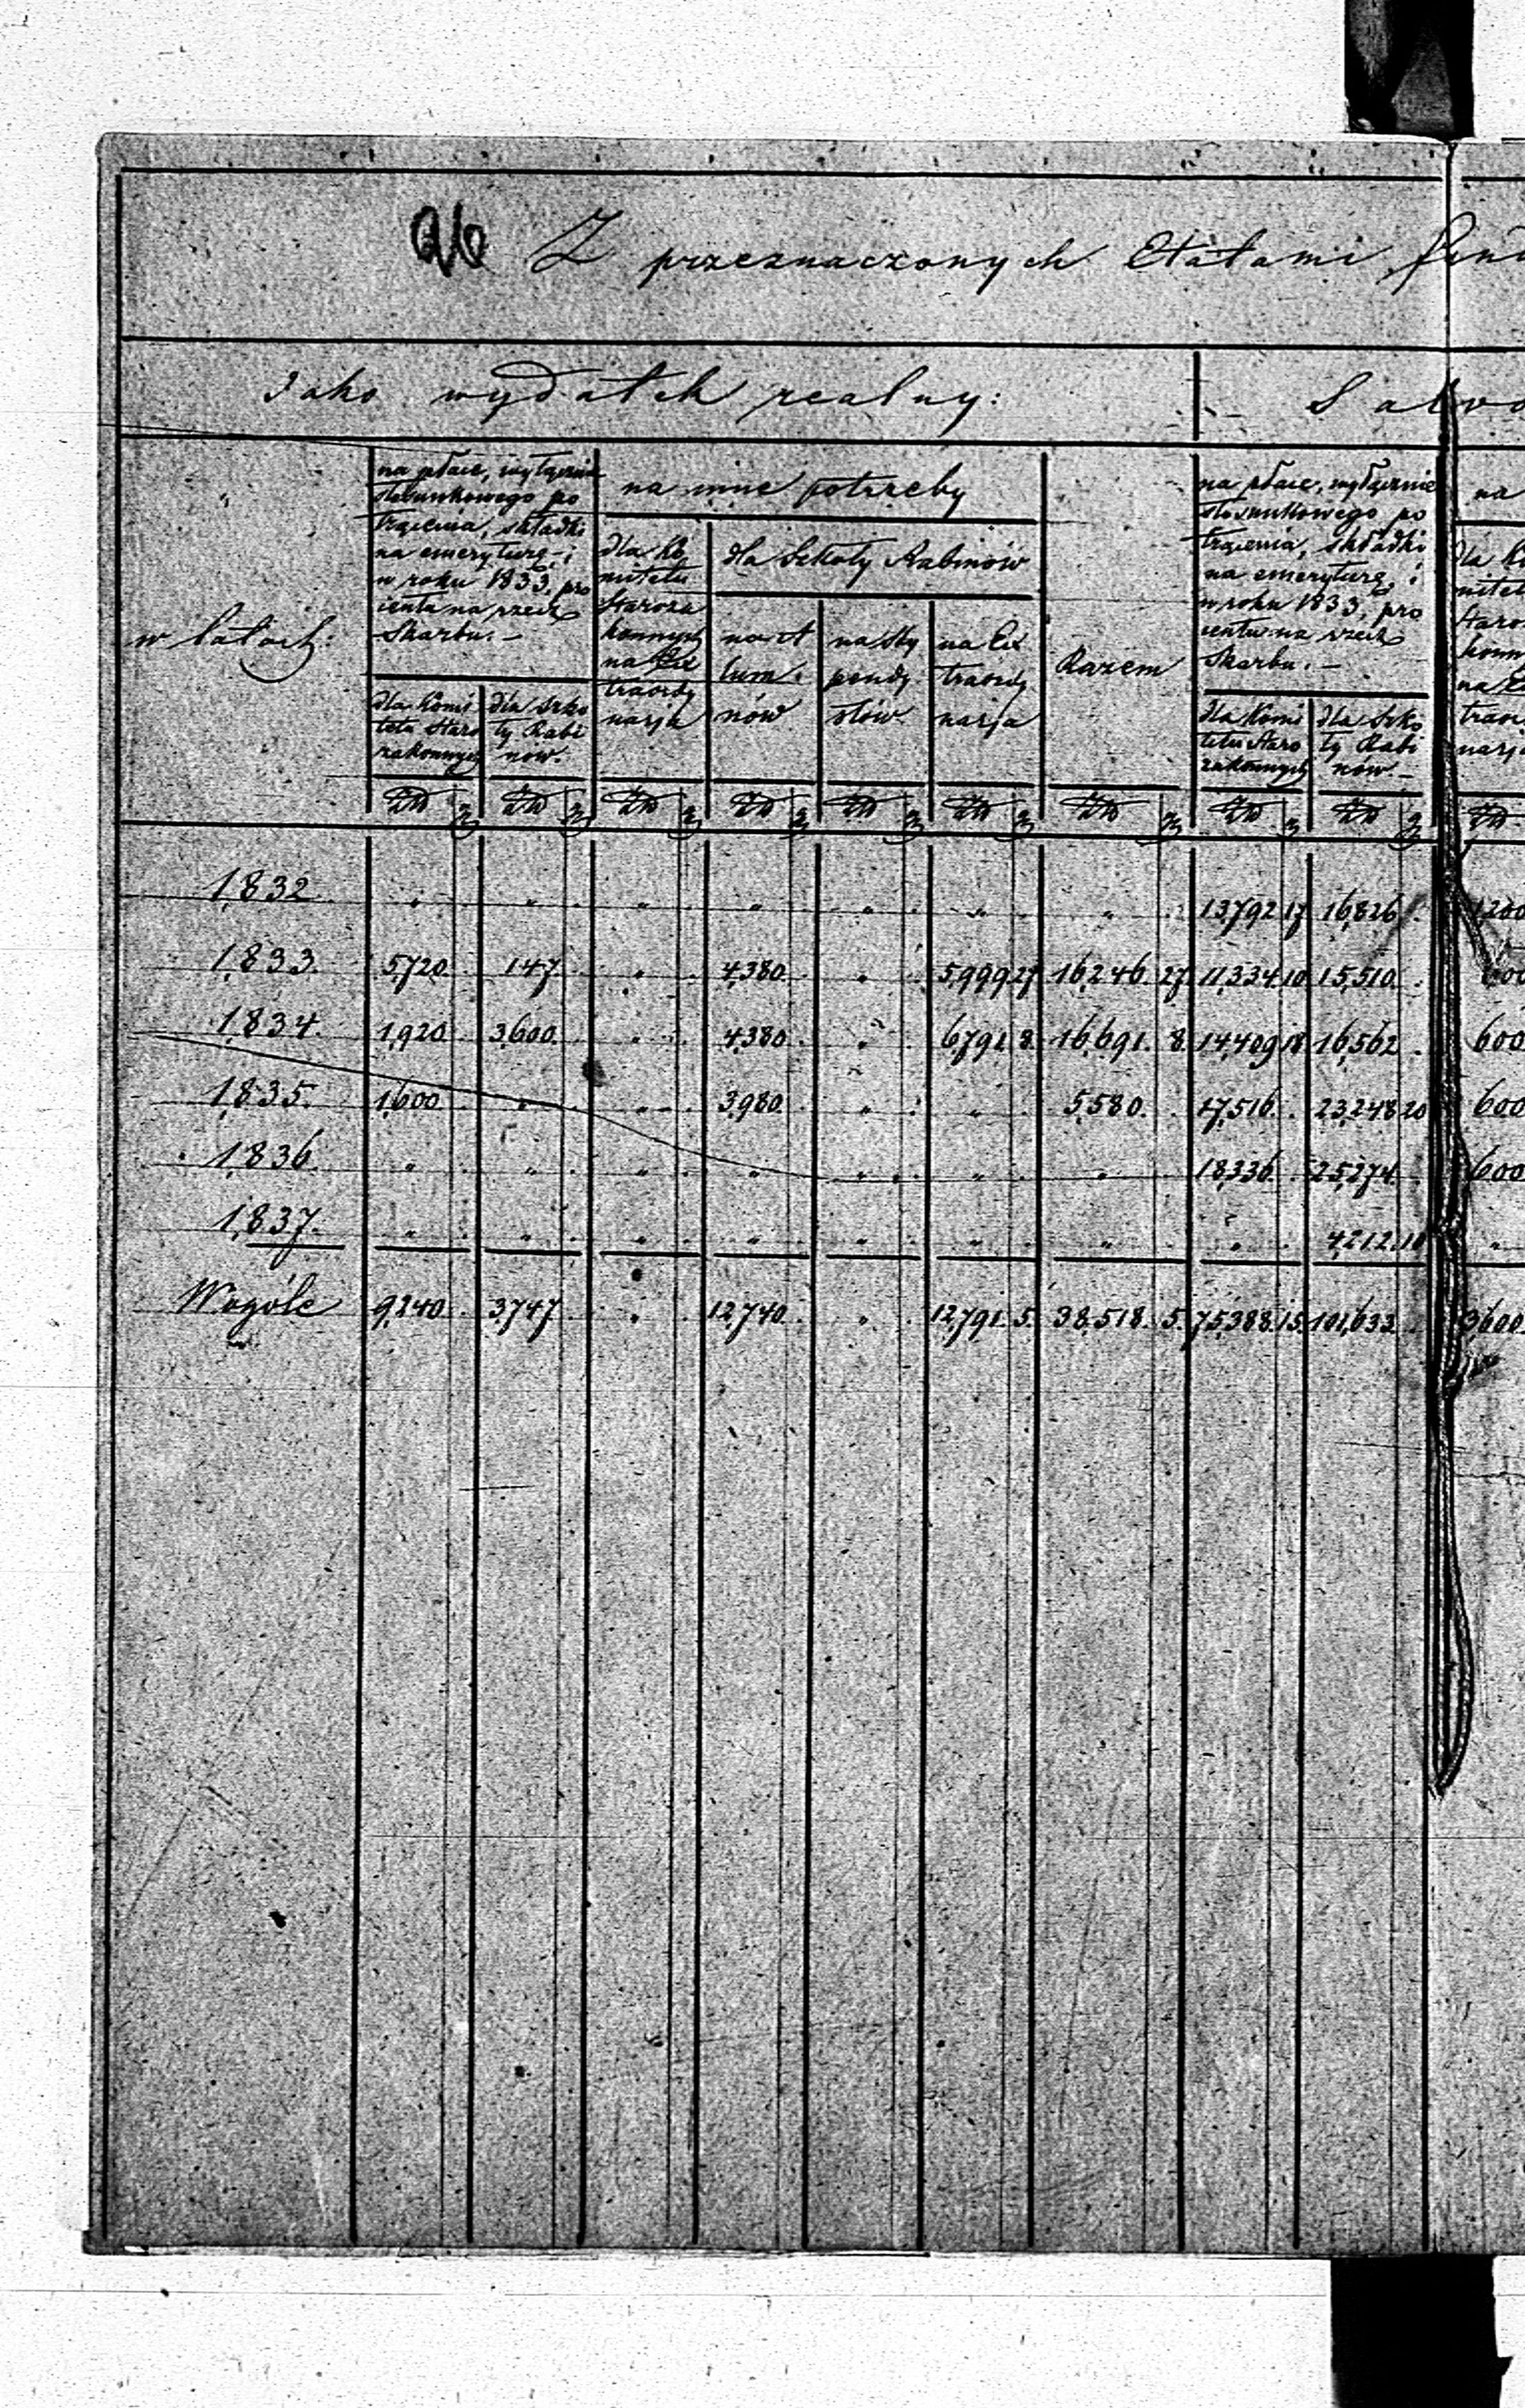 Z przeznaczonych Etatami fun
Jako wydatek realny:
Salvo
w latach:
na płace, wyłącznie
stosunkowego po
trącenia, składki
na emeryturę, i
w roku 1833, pro
centu na rzecz
Skarbu. –
dla Komi
tetu Staro
zakonnych
dla Szko
ły Rabi
nów.
na inne potrzeby
dla Ko
mitetu
Staroza
konnych
na Ex
traordy
narja
dla Szkoły Rabinów
na A
lum
nów
na Sty
pendy
stów
na Ex
traordy
narja
Razem
na płace, wyłącznie
stosunkowego po
trącenia, składki
na emeryturę, i
w roku 1833, pro
centu na rzecz
Skarbu. –
dla Komi
tetu Staro
zakonnych
dla Szko
ły Rabi
nów. –
na
dla Ko
mitet
Staro
konn
na E
traor
narja
Złp g Złp g Złp g Złp g Złp g Złp g Złp g Złp g Złp g Złp
1832 " " " " " " " 13,792 17 16,826 1200
1833. 5,720 147 " 4,380 " 5,999 27 16,246 27 11,334 10 15,510 600
1834. 1,920 3,600 " 4,380 " 6,791 8 16,691 8 14,409 18 16,562 600
1835. 1,600 " " 3,980 " " 5,580 17,516 23,248 20 600
1836 " " " " " " " 18,336 25,274 600
1837. " " " " " " " " 4,212 10 "
Wogóle 9,240 3,747 " 12,740 " 12,791 5 38,518 5 75,388 15 101,633 3,600